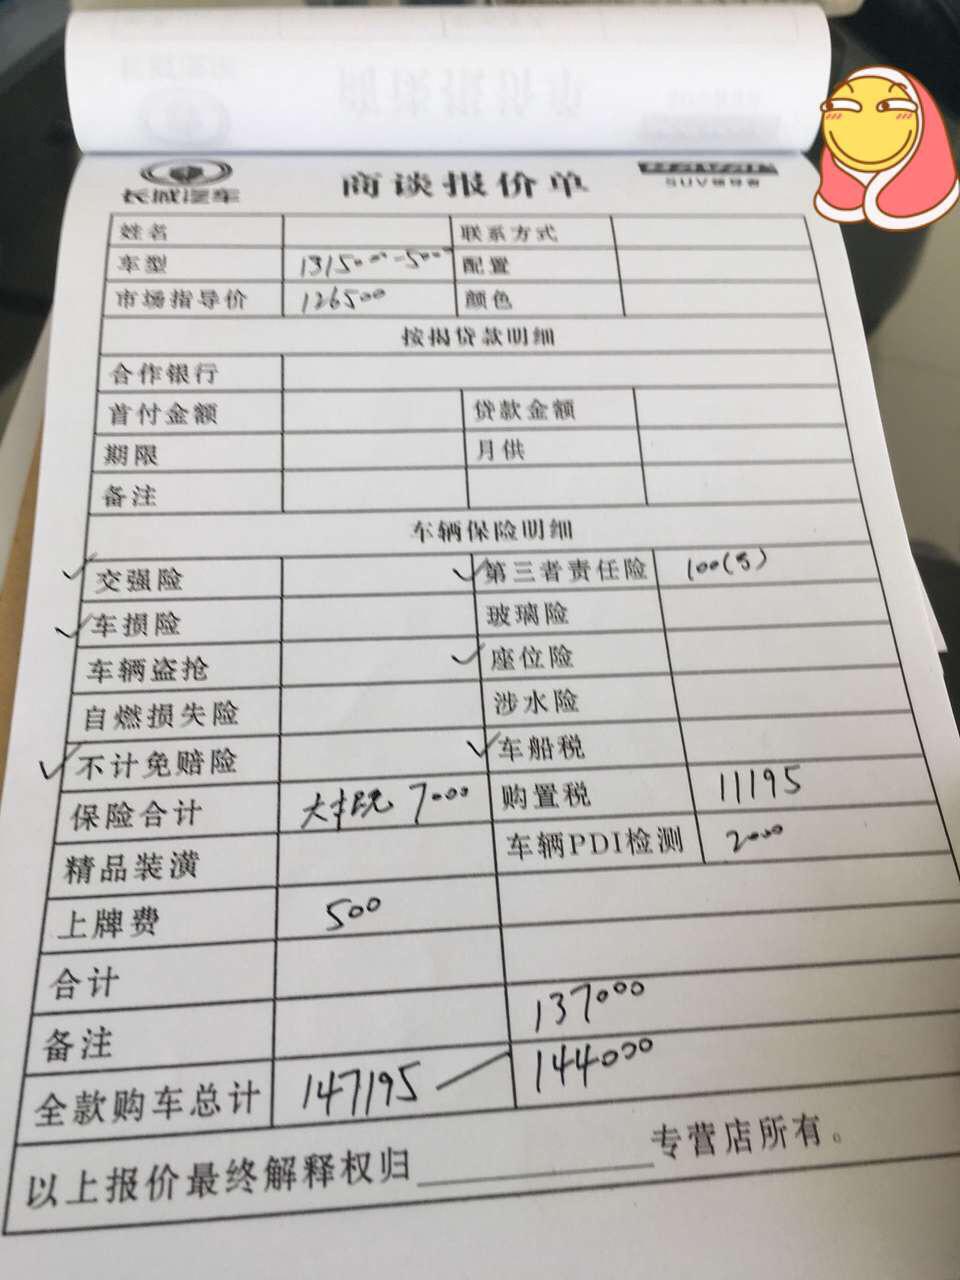 长城汽车
商谈报价单
HAVAL
SUV领导者
姓名 联系方式
车型 131500-5000 配置
市场指导价 126500 颜色
按揭贷款明细
合作银行
首付金额 贷款金额
期限 月供
备注
车辆保险明细
交强险 第三者责任险 100(万)
车损险 玻璃险
车辆盗抢 座位险
自燃损失险 涉水险
不计免赔险 车船税
保险合计 7000 购置税 11195
精品装潢 车辆PDI检测 2000
上牌费 500
合计
备注 137000
全款购车总计 147195 — 144000
以上报价最终解释权归 专营店所有。